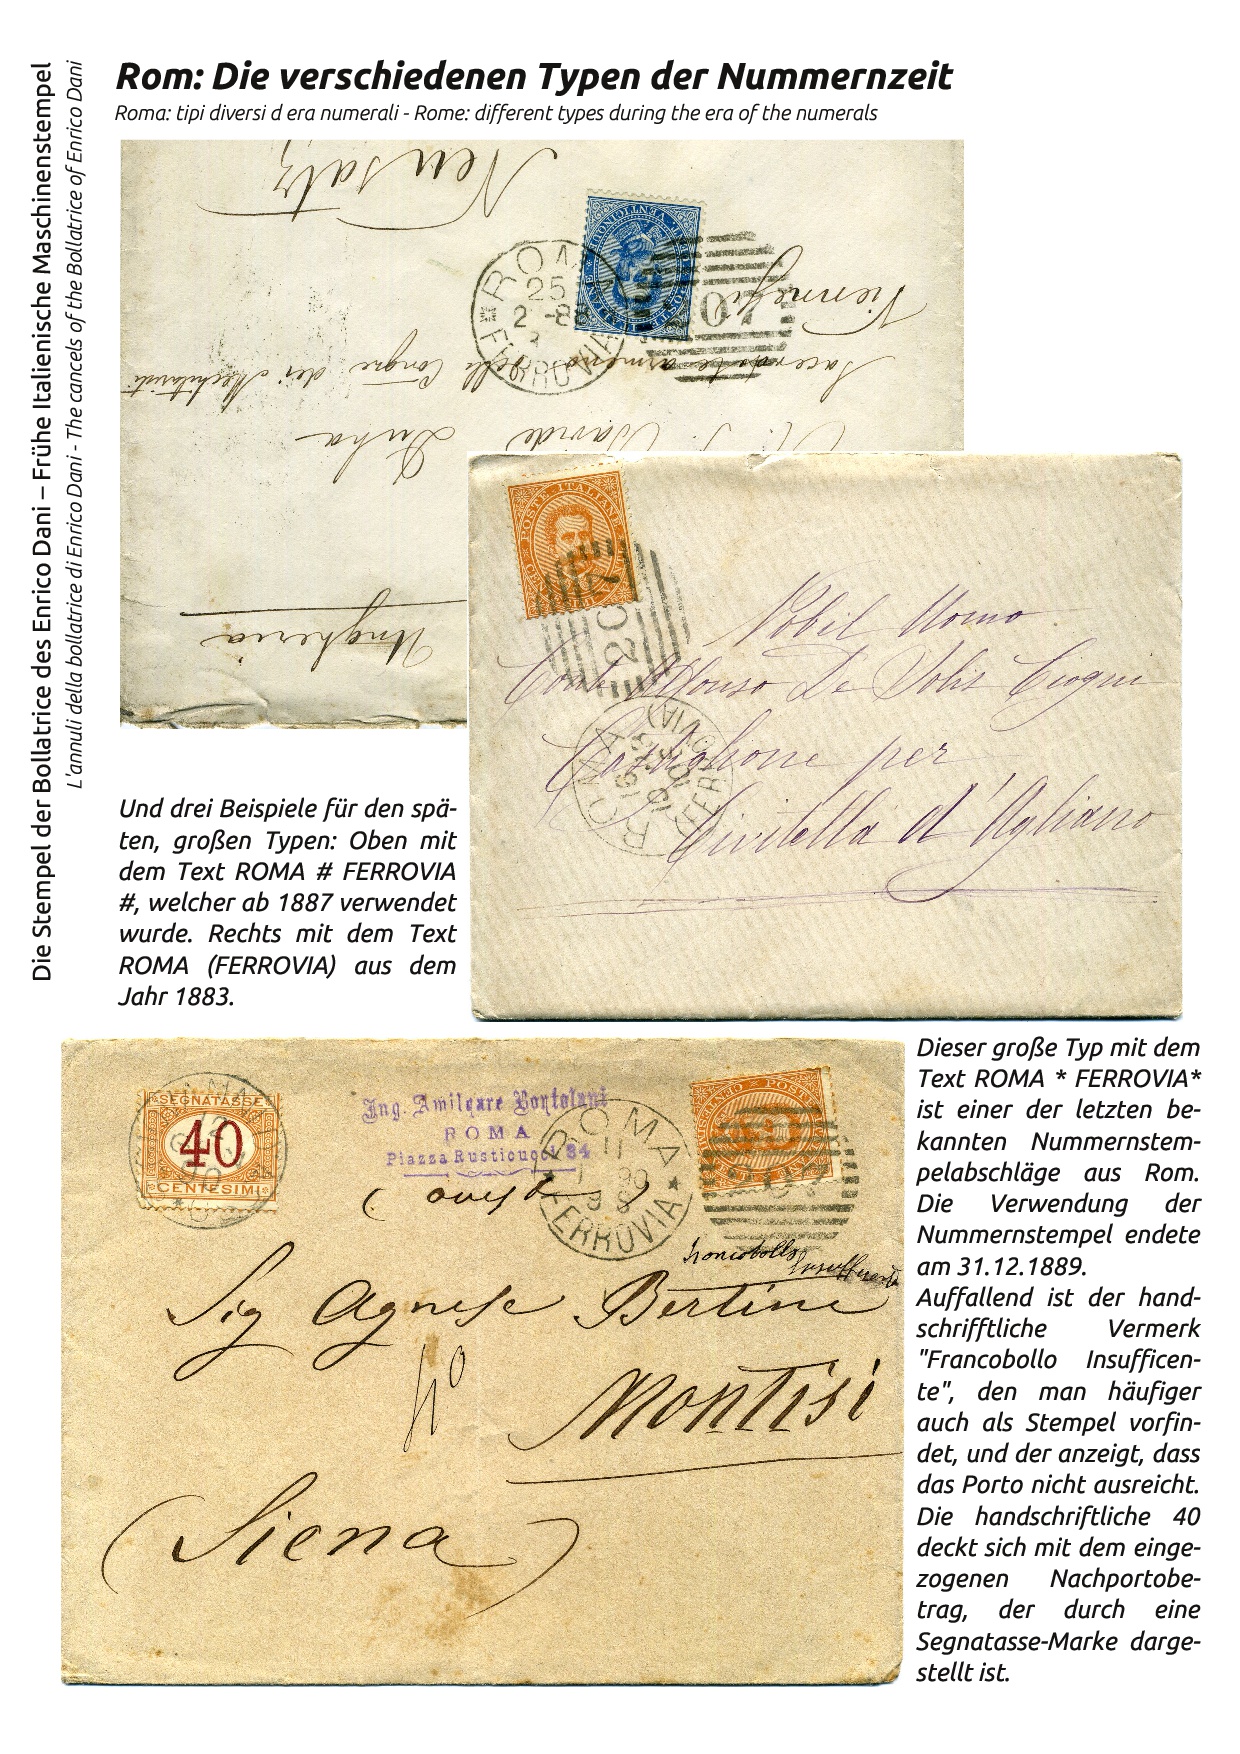 Die Stempel der Bollatrice des Enrico Dani – Frühe Italienische Maschinenstempel
L'annuli della bollatrice di Enrico Dani - The cancels of the Bollatrice of Enrico Dani
Rom: Die verschiedenen Typen der Nummernzeit
Roma: tipi diversi d era numerali - Rome: different types during the era of the numerals
Neusatz
ROMA
25
2 -88
# FERROVIA
POSTE ITALIANE
VENTICINQUE
07
Vienne
Sacerdote armeno della Congne dei Mechitaristi
Davide
Duha
Ungheria
POSTE ITALIANE
207
ROMA
(FERROVIA)
Nobil Uomo
Conte Alfonso De Solis Ciogni
Castiglione per
Civitella d'Agliano
Und drei Beispiele für den spä-
ten, großen Typen: Oben mit
dem Text ROMA # FERROVIA
#, welcher ab 1887 verwendet
wurde. Rechts mit dem Text
ROMA (FERROVIA) aus dem
Jahr 1883.
SEGNATASSE
40
CENTESIMI
Ing. Amilcare Bortolani
ROMA
Piazza Rusticucci 34
ROMA
11
FERROVIA *
POSTE
Francobollo
Insufficente
Sig Agnese Bertini
40
Montisi
(Siena)
Dieser große Typ mit dem
Text ROMA * FERROVIA*
ist einer der letzten be-
kannten Nummernstem-
pelabschläge aus Rom.
Die Verwendung der
Nummernstempel endete
am 31.12.1889.
Auffallend ist der hand-
schrifftliche Vermerk
"Francobollo Insufficen-
te", den man häufiger
auch als Stempel vorfin-
det, und der anzeigt, dass
das Porto nicht ausreicht.
Die handschriftliche 40
deckt sich mit dem einge-
zogenen Nachportobe-
trag, der durch eine
Segnatasse-Marke darge-
stellt ist.